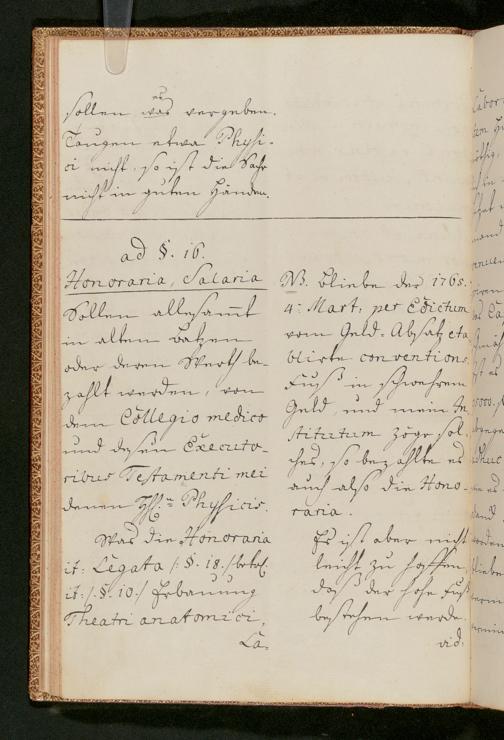 sollen was vergeben.
Taugen etwa Physi-
ci nicht, so ist die Sache
nicht in guten Händen.
ad §. 16.
Honoraria, Salaria
Sollen allesamt
in alten Batzen
oder deren Werth be-
zahlt werden, von
dem Collegio medico
und desen Executo-
ribus Testamenti mei
denen Physicis.
Was die Honoraria
it: Legata /: §. 18. :/
it: /: §. 10. :/ Erbauung
Theatri anatomici,
La-
NB. Bliebe der 1765.
4. Mart: per Edictum
vom Geld-Absatz eta
blirte conventions
Fuß in schwehrem
Geld, und mein In
stitutum zöge sol-
ches, so bezahlte es
auch also die Hono-
raria.
Es ist aber nicht
leicht zu hoffen,
daß der hohe Fuß
bestehen werde.
vid.